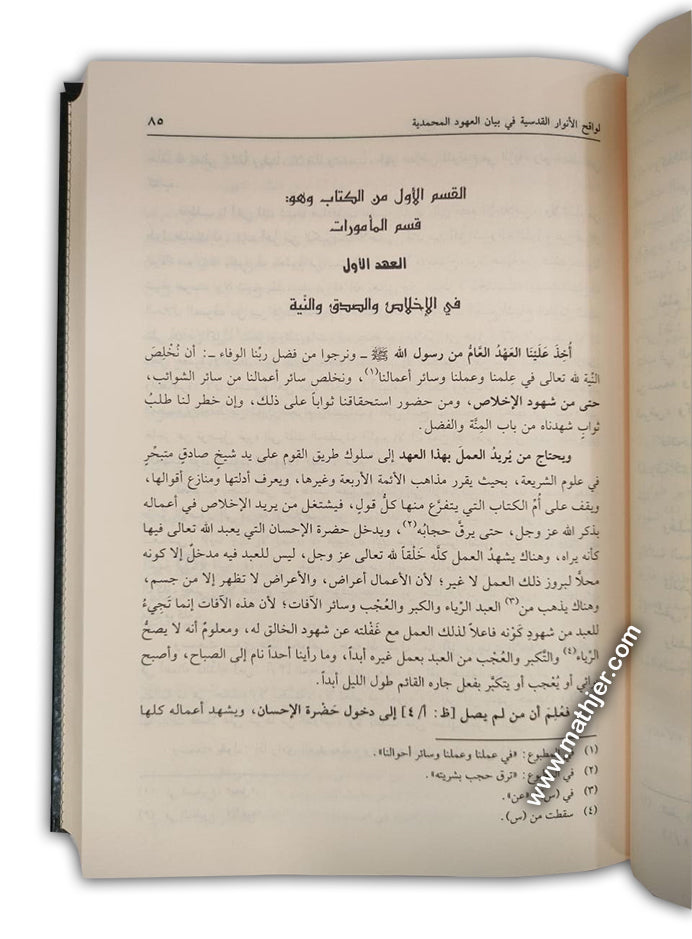 لواقح الأنوار القدسية في بيان العهود المحمدية ٨٥
القسم الأول من الكتاب وهو:
قسم المأمورات
العهد الأول
في الإخلاص والصدق والنّية
أُخِذَ عَلَيْنَا العَهْدُ العَّامُّ من رسول الله ﷺ ـ ونرجوا من فضل ربّنا الوفاء ـ: أن نُخْلِصَ
النّية لله تعالى في عِلمنا وعملنا وسائر أعمالنا(١)، ونخلص سائر أعمالنا من سائر الشوائب،
حتى من شهود الإخلاص، ومن حضور استحقاقنا ثواباً على ذلك، وإن خطر لنا طلبُ
ثوابٍ شهدناه من باب المِنَّة والفضل.
ويحتاج من يُريدُ العملَ بهذا العهد إلى سلوك طريق القوم على يد شيخٍ صادقٍ متبحِّرٍ
في علوم الشريعة، بحيث يقرر مذاهب الأئمة الأربعة وغيرها، ويعرف أدلتها ومنازع أقوالها،
ويقف على أُمِّ الكتاب التي يتفرَّع منها كلُّ قولٍ، فيشتغل من يريد الإخلاص في أعماله
بذكر الله عز وجل، حتى يرقَّ حجابُه(٢)، ويدخل حضرة الإحسان التي يعبد الله تعالى فيها
كأنه يراه، وهناك يشهدُ العمل كلَّه خَلْقاً لله تعالى عز وجل، ليس للعبد فيه مدخلٌ إلا كونه
محلًّا لبروز ذلك العمل لا غير؛ لأن الأعمال أعراض، والأعراض لا تظهر إلا من جسم،
وهناك يذهب من(٣) العبد الرِّياء والكبر والعُجْب وسائر الآفات؛ لأن هذه الآفات إنما تَجِيءُ
للعبد من شهودِ كَوْنه فاعلاً لذلك العمل مع غَفْلته عن شهود الخالق له، ومعلومٌ أنه لا يصحُّ
الرِّياء(٤) والتَّكبر والعُجْب من العبد بعمل غيره أبداً، وما رأينا أحداً نام إلى الصباح، وأصبح
يُرائي أو يُعجب أو يتكبَّر بفعل جاره القائم طول الليل أبداً.
فعُلِمَ أن من لم يصل [ظ: أ/٤] إلى دخول حَضْرة الإحسان، ويشهد أعماله كلها
(١) في المطبوع: «في عملنا وعملنا وسائر أحوالنا».
(٢) في المطبوع: «ترق حجب بشريته».
(٣) في (س): «عن».
(٤) سقطت من (س).
www.mathjer.com